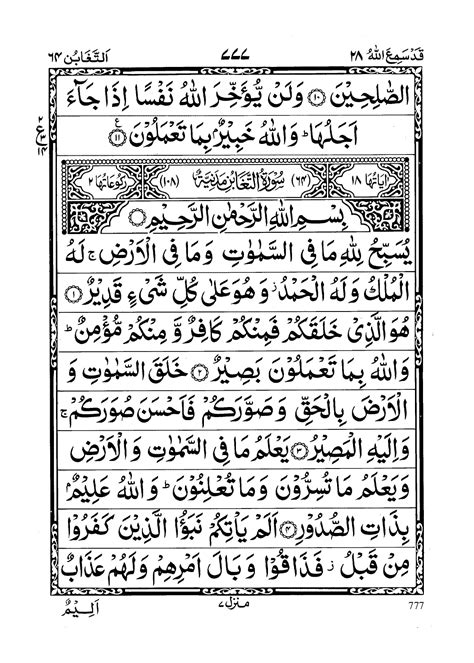 قَدۡسَمِعَ اللّٰهُ ٢٨
٧٧٧
اَلتَّغَابُن ٦٤
الصّٰلِحِيۡنَ ۞١٠ وَلَنۡ يُّؤَخِّرَ اللّٰهُ نَفۡسًا اِذَا جَآءَ
اَجَلُهَا ؕ وَاللّٰهُ خَبِيۡرٌۢ بِمَا تَعۡمَلُوۡنَ ۞١١ ع
٢
ع
٣
١٤
اٰيَاتُهَا ١٨
(٦٤) سُوۡرَةُ التَّغَابُنِ مَدَنِيَّةٌ (١٠٨)
رُكُوۡعَاتُهَا ٢
بِسۡمِ اللّٰهِ الرَّحۡمٰنِ الرَّحِيۡمِ ۞
يُسَبِّحُ لِلّٰهِ مَا فِى السَّمٰوٰتِ وَمَا فِى الۡاَرۡضِ ۚ لَهُ
الۡمُلۡكُ وَلَهُ الۡحَمۡدُ ؗ وَهُوَ عَلٰى كُلِّ شَىۡءٍ قَدِيۡرٌ ۞١
هُوَ الَّذِىۡ خَلَقَكُمۡ فَمِنۡكُمۡ كَافِرٌ وَّمِنۡكُمۡ مُّؤۡمِنٌ ؕ
وَاللّٰهُ بِمَا تَعۡمَلُوۡنَ بَصِيۡرٌ ۞٢ خَلَقَ السَّمٰوٰتِ وَ
الۡاَرۡضَ بِالۡحَقِّ وَصَوَّرَكُمۡ فَاَحۡسَنَ صُوَرَكُمۡ ۚ
وَاِلَيۡهِ الۡمَصِيۡرُ ۞٣ يَعۡلَمُ مَا فِى السَّمٰوٰتِ وَالۡاَرۡضِ
وَيَعۡلَمُ مَا تُسِرُّوۡنَ وَمَا تُعۡلِنُوۡنَ ؕ وَاللّٰهُ عَلِيۡمٌۢ
بِذَاتِ الصُّدُوۡرِ ۞٤ اَلَمۡ يَاۡتِكُمۡ نَبَؤُا الَّذِيۡنَ كَفَرُوۡا
مِنۡ قَبۡلُ ؗ فَذَاقُوۡا وَبَالَ اَمۡرِهِمۡ وَلَهُمۡ عَذَابٌ
777
منزل ٧
اَلِيۡمٌ